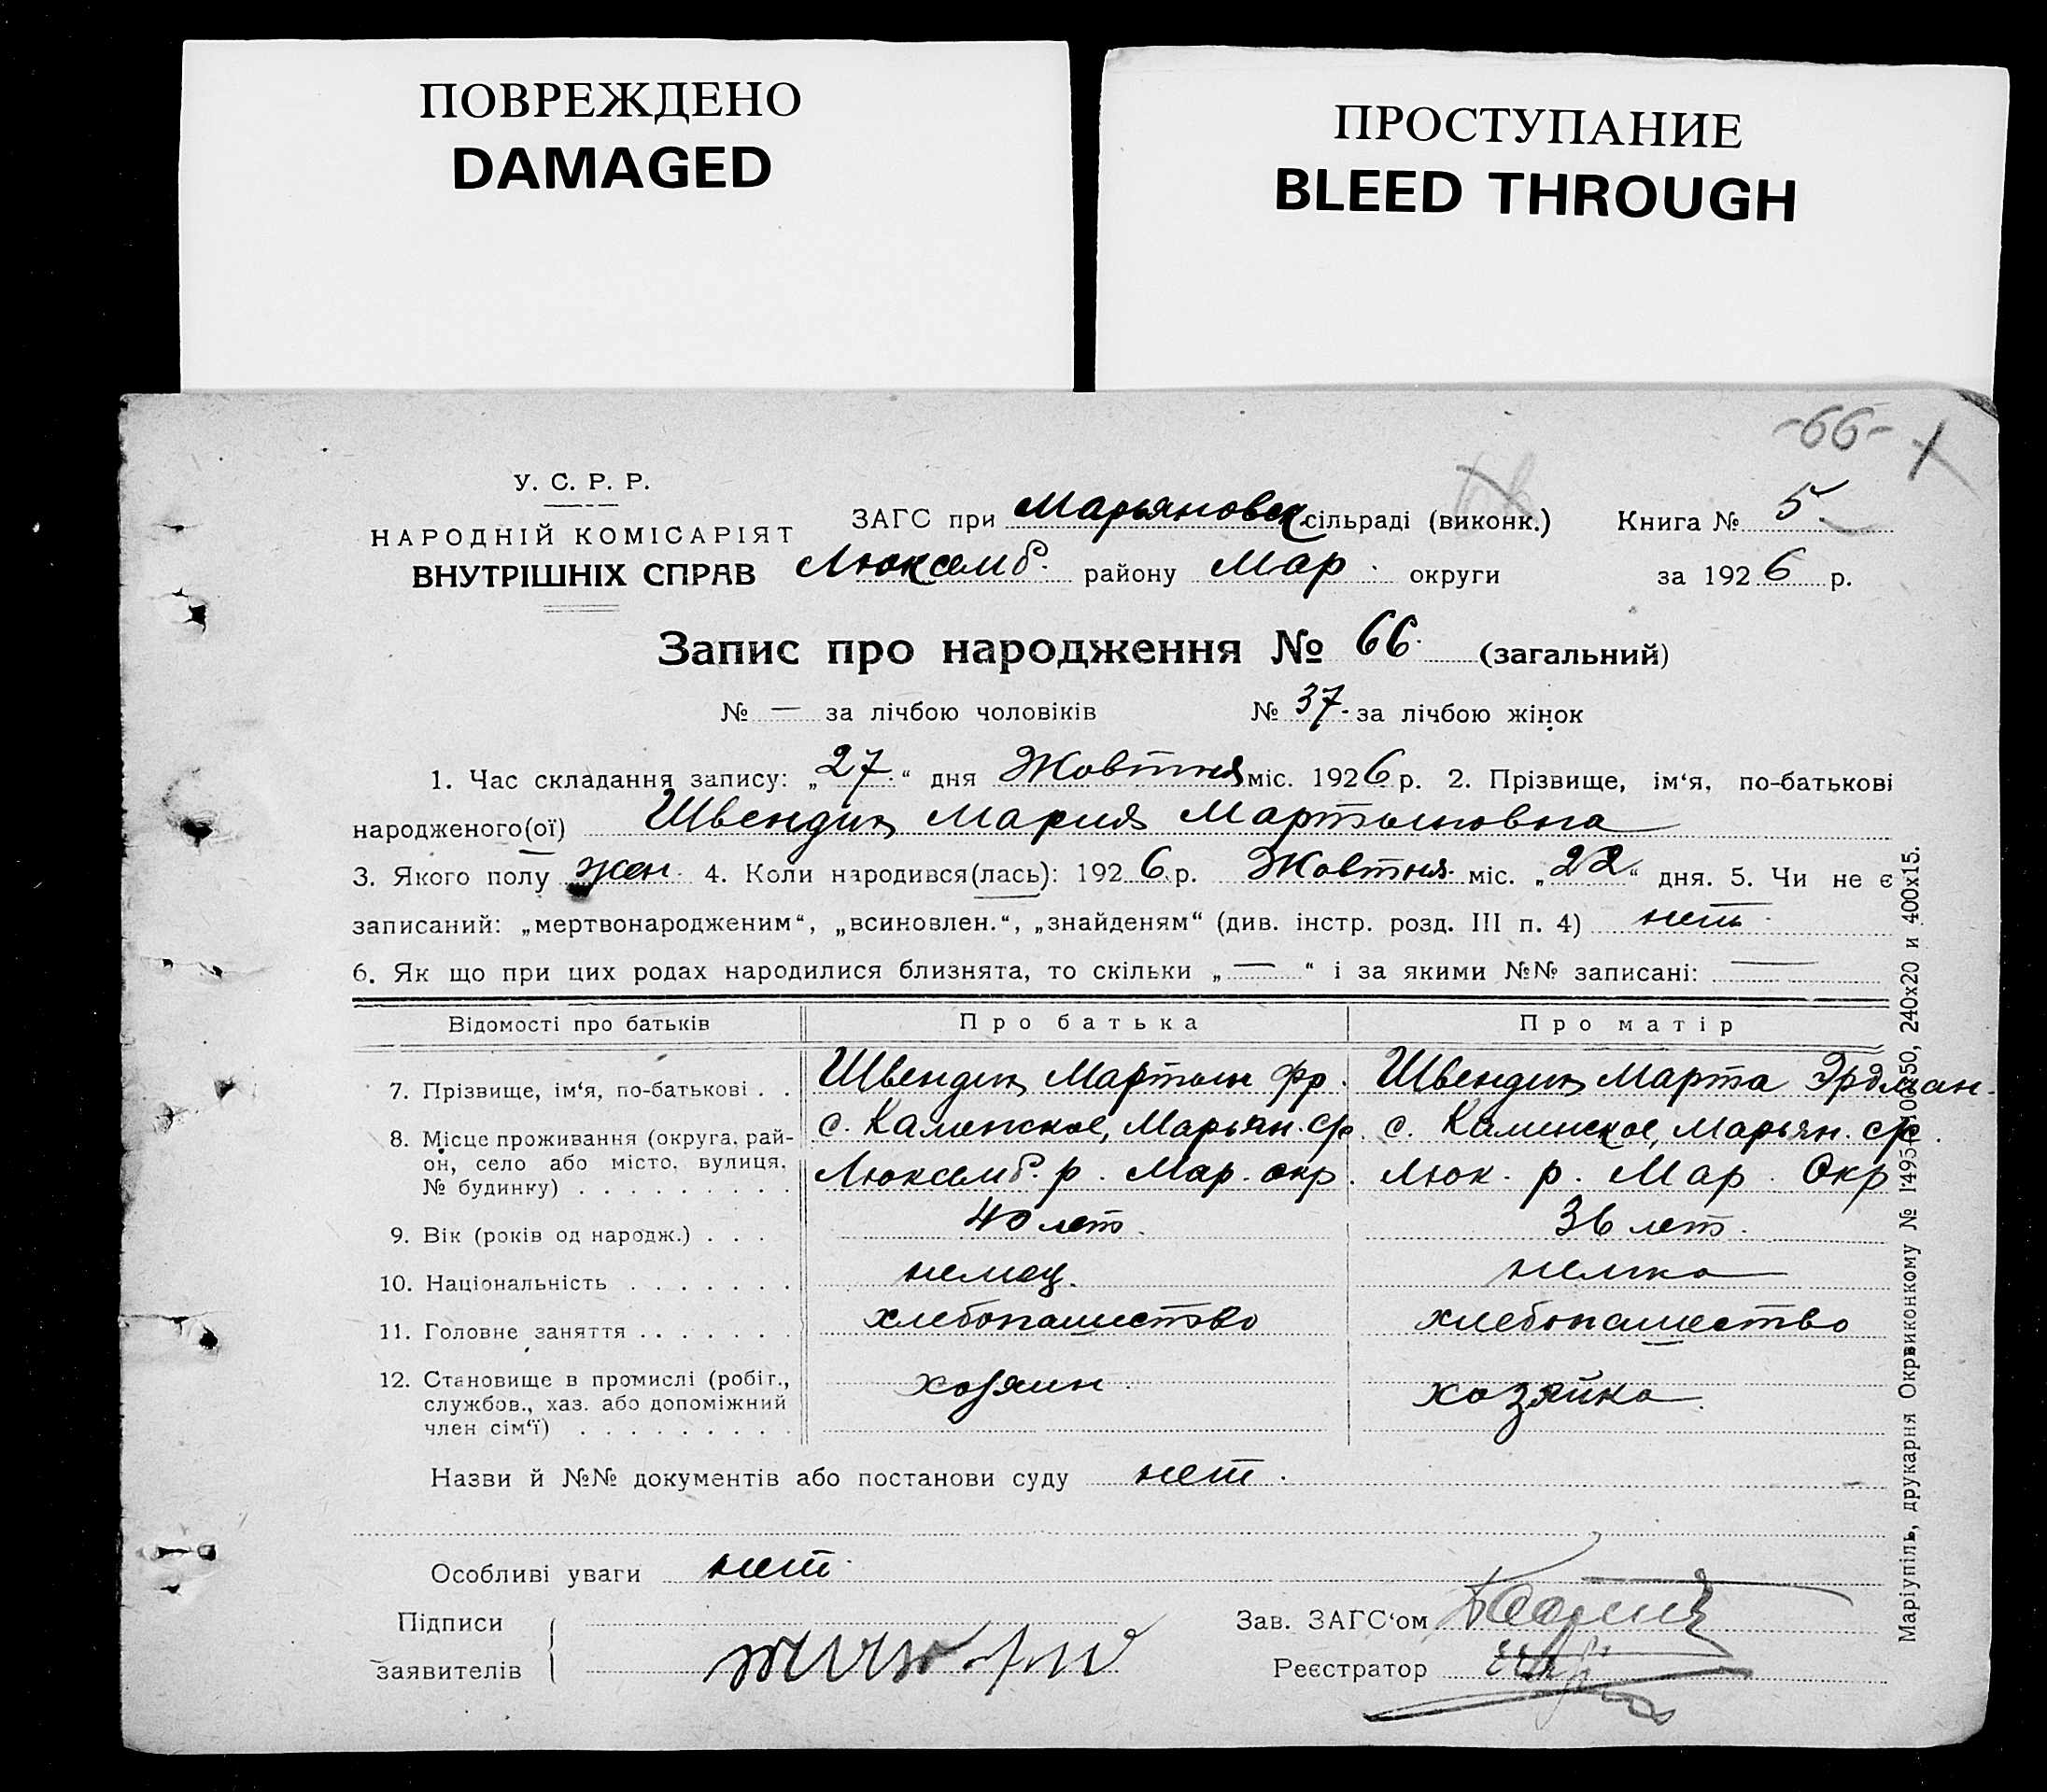 ПОВРЕЖДЕНО
DAMAGED
ПРОСТУПАНИЕ
BLEED THROUGH
-66-
У. С. Р. Р.
НАРОДНІЙ КОМІСАРІЯТ
ВНУТРІШНІХ СПРАВ
ЗАГС при Марьяновск сільраді (виконк.) Книга № 5.
Люксемб. району Мар. округи за 1926 р.
Запис про народження № 66. (загальний)
№ — за лічбою чоловіків № 37. за лічбою жінок
1. Час складання запису: „27.“ дня Жовтня міс. 1926 р. 2. Прізвище, ім‘я, по-батькові
народженого(ої) Швендих Мария Мартыновна
3. Якого полу жен. 4. Коли народився(лась): 1926 р. Жовтня міс. „22“ дня. 5. Чи не є
записаний: „мертвонародженим“, „всиновлен.“, „знайденям“ (див. інстр. розд. III п. 4) нет.
6. Як що при цих родах народилися близнята, то скільки „—“ і за якими №№ записані: —
Відомості про батьків Про батька Про матір
7. Прізвище, ім‘я, по-батькові . . Швендих Мартын Фр. Швендих Марта Эрдман.
8. Місце проживання (округа, рай-
он, село або місто, вулиця,
№ будинку) . . . . . . . . .
с. Каменское, Марьян. с/с. с. Каменское, Марьян. с/с.
Люксемб. р. Мар. окр. Люк. р. Мар. Окр
9. Вік (років од народж.) . . . 40 лет. 36 лет.
10. Національність . . . . . . . немец. немка
11. Головне заняття . . . . . . . хлебопашество хлебопашество
12. Становище в промислі (робіт.,
службов., хаз. або допоміжний
член сім‘ї) . . . . . . . . .
хозяин. хозяйка.
Назви й №№ документів або постанови суду нет.
Особливі уваги нет.
Підписи
заявителів
Зав. ЗАГС‘ом
Реєстратор
Маріупіль, друкарня Окрвиконкому № 1495-100x50, 240x20 и 400x15.